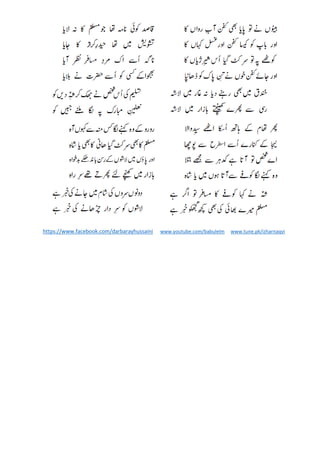 قاصد کوئی نامہ تھا جو مسلمؑ کا نہ لایا
تشویش میں تھا حیدرِ کرّارؑ کا جایا
ناگہ اُسے اک مردِ مسافر نظر آیا
بھجوا کے کسی کو اُسے حضرت نے بلایا
تسلیم کی اُس شخص نے جھک کر شہِؑ دیں کو
نعلینِ مبارک پہ لگا ملنے جبیں کو
بیٹوں نے تو پایا بھی کفن آپ رواں کا
اور باپ کو کیسا کفن اور غسل کہاں کا
کوٹھے پہ تو سر کٹ گیا اُس شیرِ ژیاں کا
کفن خوں نے
خندق میں بھی رہنے دیا نہ غار میں لاشہ
رسی سے کھینچتے پھرے بازار میں لاشہ
رو رو کے وہ کہنے لگا کس منہ سے کہوں آہ
مسلمؑ کا بھی سر کٹ گیا ہانی کا بھی یا شاہ
اور پاؤں میں لاشوں کے رسن باندھ کے بدخواہ
بازار میں کھینچے لئے پھرتے تھے سرِ راہ
دونوں سروں کی شام میں جانے کی خبر ہے
لاشوں کو سرِ دار چڑھانے کی خبر ہے
پھر تھام کے ہاتھ اُسکا اٹھے سیدِ والا
لیجا کے کنارے اُسے اسطرح سے پوچھا
اے شخص تو آتا ہے کدھر سے مجھے بتلا
وہ کہنے لگا کوفے سے آتا ہوں میں یا شاہ
شہؑ نے کہا کوفے کا مسافر تو اگر ہے
مسلمؑ میرے بھائی کی بھی کچھ تجھکو خبر ہے
https://www.facebook.com/darbarayhussaini www.youtube.com/babulelm www.tune.pk/izharnaqvi